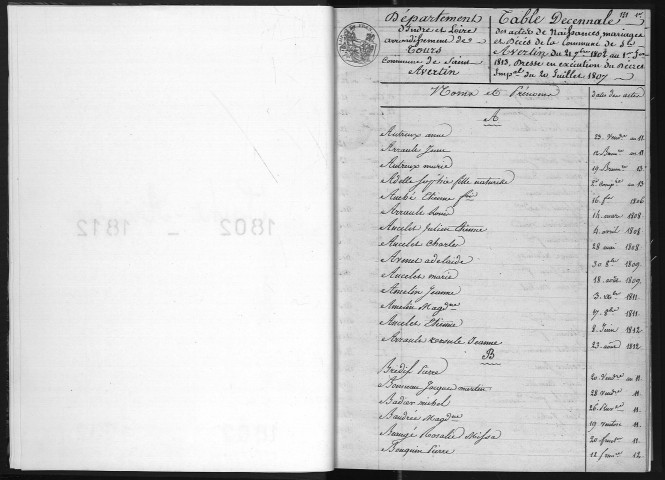 Département
d'Indre et Loire
arrondissement de
Tours
Commune de Saint
Avertin
Table Decennale
des actes de Naissances, mariages
et Décès de la Commune de St
Avertin du 21 7bre 1802 au 1er Jer
1813. Dressé en exécution du Décret
Impal du 20 Juillet 1807
Noms et Prénoms
Dates des actes
A
Autreux anne 23 Vendre an 11
Arrault Jean 12 Brumre an 11
Autreux marie 19 Brumre 13
Adelle Sophie fille naturelle 2e compre an 13
Aubé Etienne 16 1806
Arrault Louis 14 mars 1808
Ancelet Julien Etienne 4 avril 1808
Ancelet Charle 28 mai 1808
Avenet adelaide 30 8bre 1809
Ancelet marie 18 août 1809
Amelin Jeanne 3 1811
Amelin Magdne 17 8bre 1811
Ancelet Etienne 8 Juin 1812
Arrault Jeanne 23 août 1812
B
Brédif Pierre 20 Vendre an 11
Bonneau Jacques martin 28 Vendre 11
Badier michel 26 11
Baudrée Magdne 19 Ventose 11
Beaugé Rosalie 20 11
Bouquin Pierre 12 12
1802 - 1812